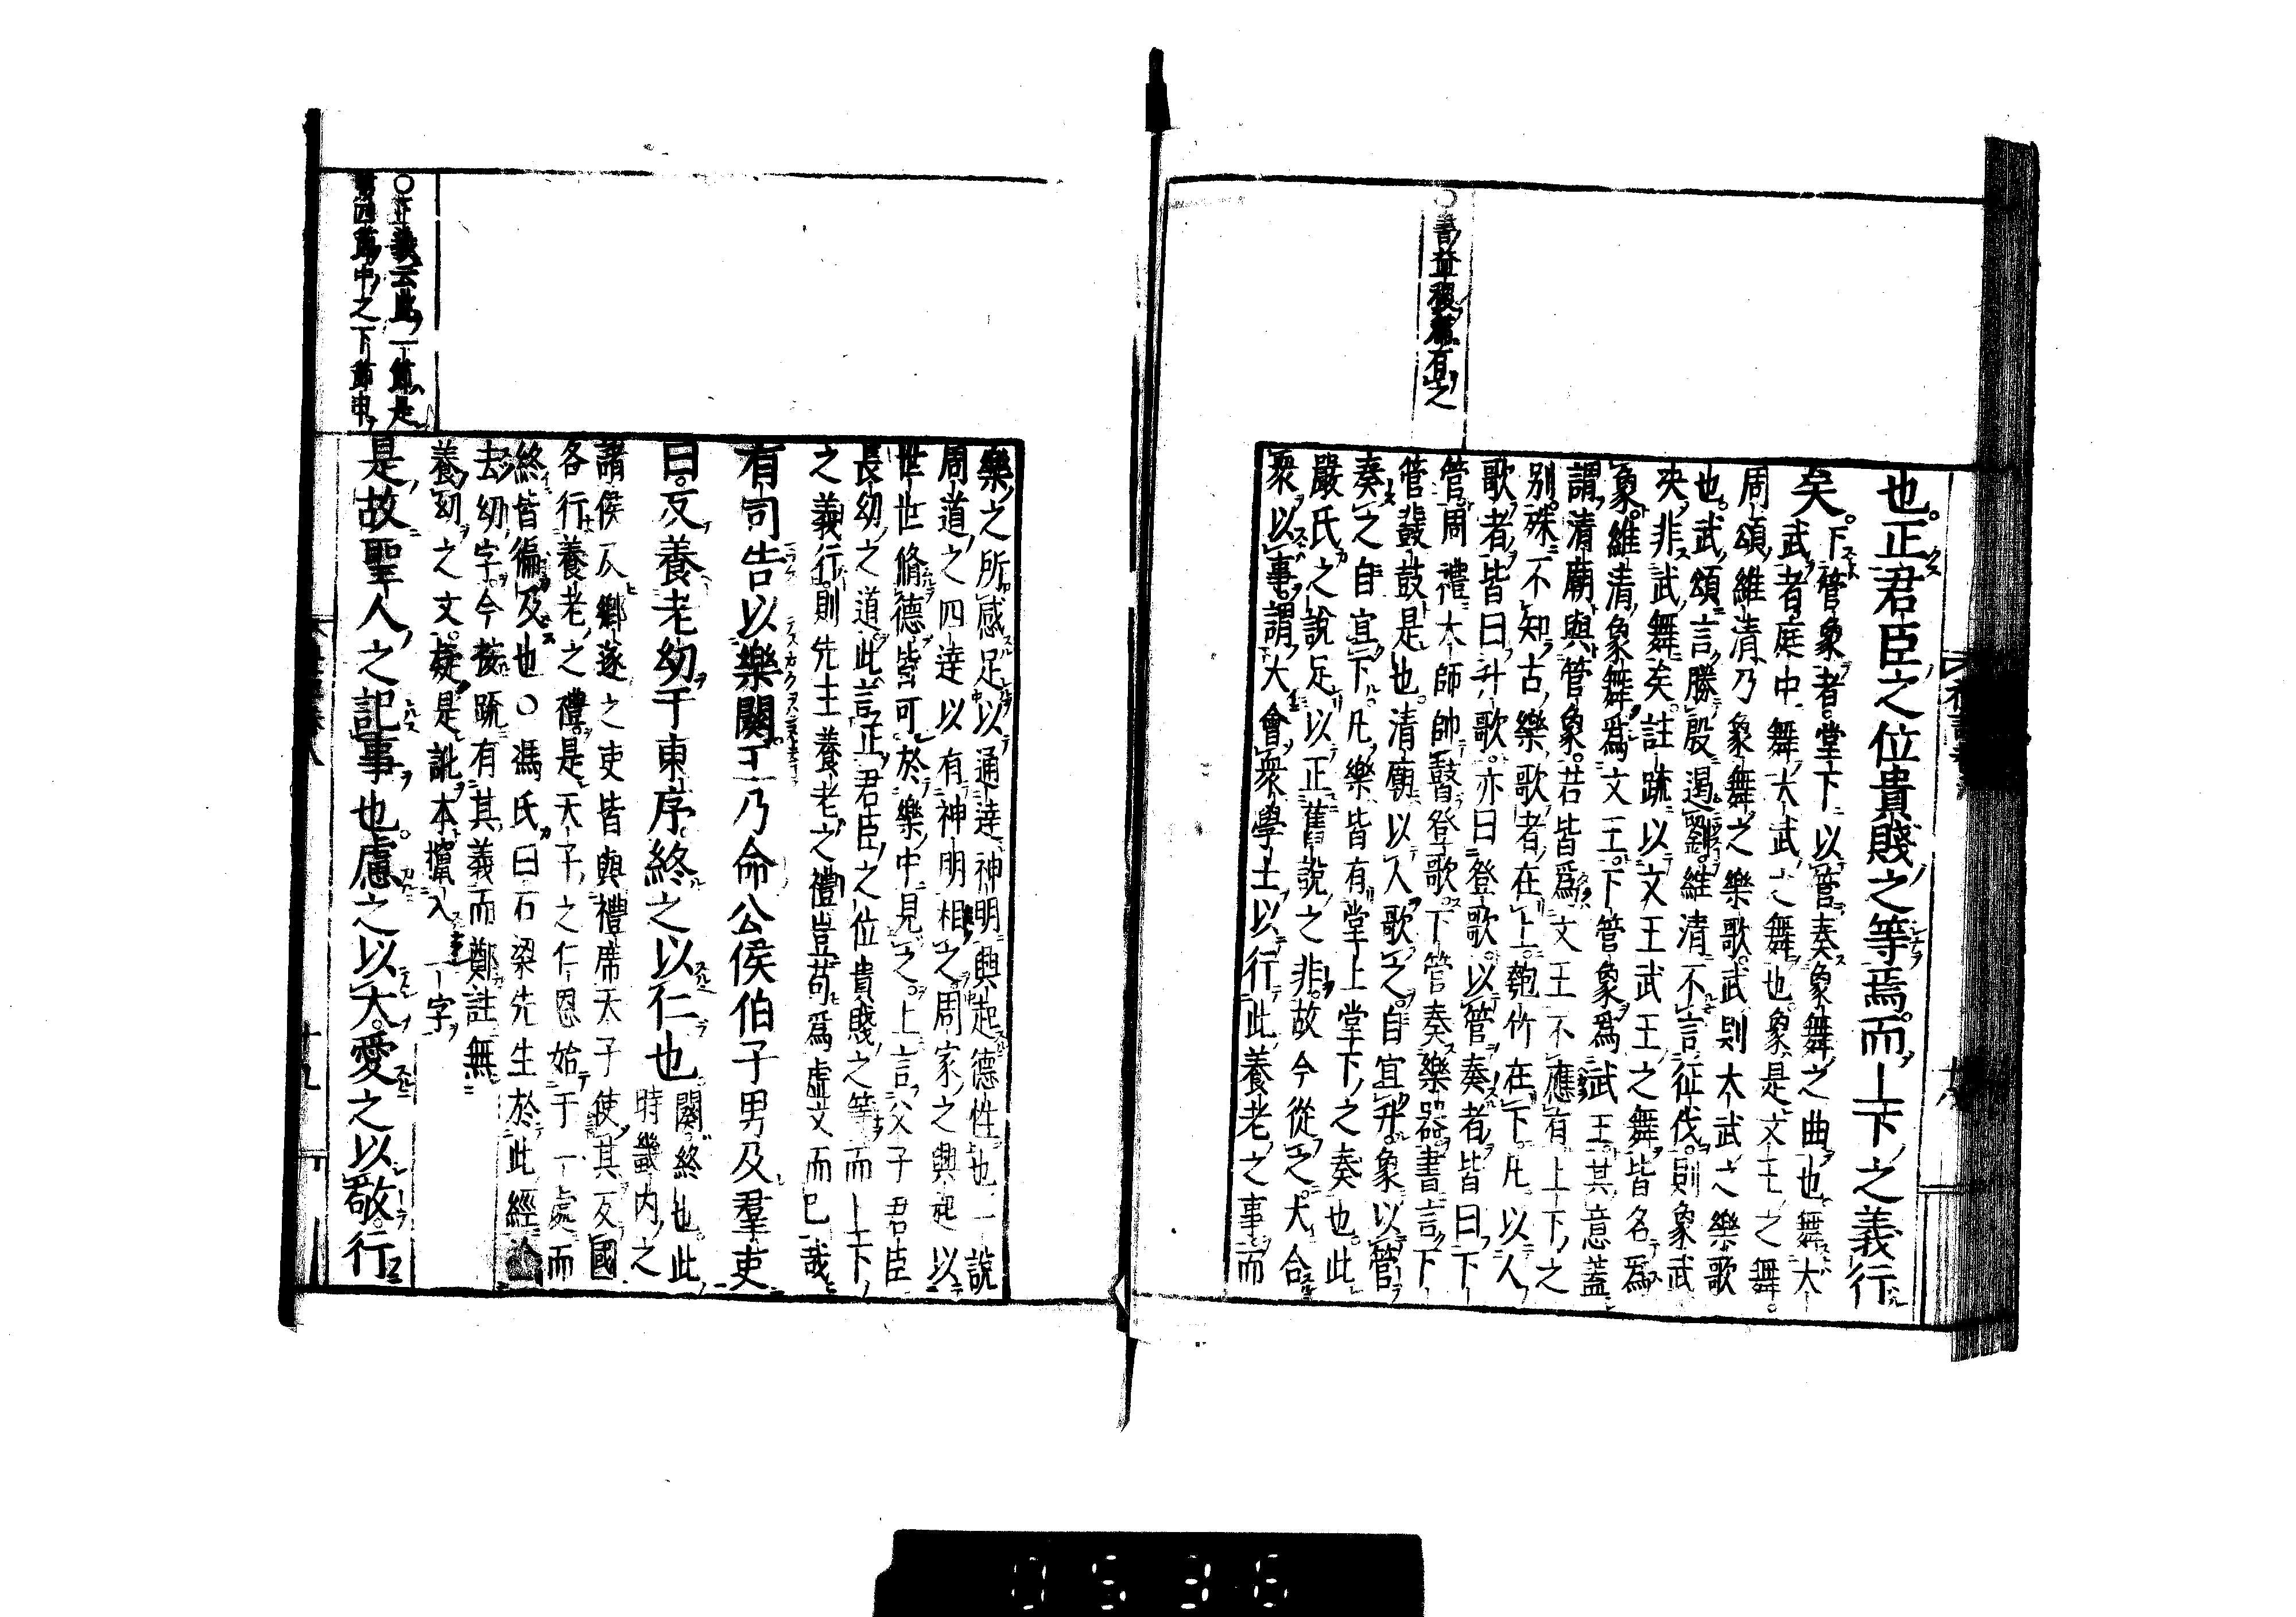 ○書益稷篇有之
也。正君臣之位貴賤之等焉。而上下之義行
矣。下管象者。堂下以管奏象舞之曲也。舞大
武者。庭中舞大武之舞也。象是文王之舞。
周頌維清乃象舞之樂歌。武則大武之樂歌
也。武頌言勝殷遏劉。維清不言征伐。則象武
決非武舞矣。註疏以文王武王之舞皆名為
象。維清象舞為文王。下管象為武王。其意蓋
謂清廟與管象。若皆為文王不應有上下之
別。殊不知古樂歌者在上。匏竹在下。凡以人
歌者。皆曰升歌。亦曰登歌。以管奏者。皆曰下
管。周禮大師帥瞽登歌。下管奏樂器。書言下
管鼗鼓是也。清廟以人歌之。自宜升。象以管
奏之自宜下。凡樂皆有堂上堂下之奏也。此
嚴氏之說足以正舊說之非。故今從之。大合
衆以事。謂大會衆學士以行此養老之事。而
樂之所感足以通達神明興起德性也一說
周道之四達以有神明相之。周家之興起以
世世脩德皆可於樂中見之。上言父子君臣
長幼之道。此言正君臣之位貴賤之等而上下
之義行。則先王養老之禮豈苟為虛文而已哉
有司告以樂闋。王乃命公侯伯子男及羣吏
曰。反養老幼于東序。終之以仁也 闋終也。此
時畿內之
諸侯及鄉遂之吏皆與禮席天子使其反國
各行養老之禮。是天子之仁恩始于一處而
終皆徧及也○馮氏曰石梁先生於此經塗
去幼字。今按疏有其義而鄭註無
養幼之文。疑是訛本攙入一字
○正義云此一節是
第四節中之下節申
是故聖人之記事也。慮之以大。愛之以敬。行